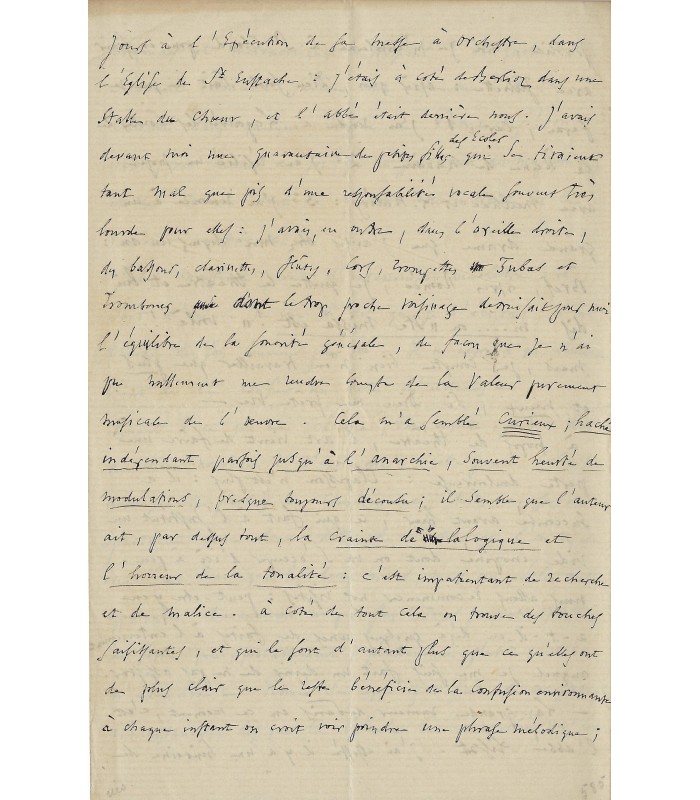 Jours à l'Exécution de sa messe à orchestre, dans
l'Eglise de St. Eustache : j'étais à coté de Berlioz dans une
Stalle du Chœur, et l'abbé était derrière nous. J'avais
devant moi une quarantaine de petites filles des Ecoles qui se tiraient
tant mal que pis d'une responsabilité vocale souvent très
lourde pour elles : j'avais, en outre, dans l'oreille droite,
des bassons, clarinettes, flûtes, Cors, Trompettes Tubas et
Trombones dont le trop proche voisinage détruisait pour moi
l'équilibre de la sonorité générale, de façon que je n'ai
pu nullement me rendre compte de la Valeur purement
musicale de l'œuvre. Cela m'a semblé curieux ; haché
indépendant parfois jusqu'à l'anarchie, souvent heurté de
modulations, presque toujours décousu ; il semble que l'auteur
ait, par dessus tout, la crainte de la logique et
l'horreur de la tonalité : c'est impatientant de recherche
et de malice. à coté de tout cela on trouve des touches
saisissantes, et qui le sont d'autant plus que ce qu'elles ont
de plus clair que le reste bénéficie de la Confusion environnante
à chaque instant on croit voir poindre une phrase mélodique ;
585